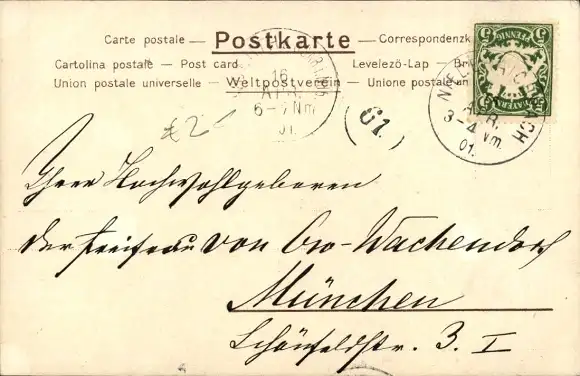 Carte postale — Postkarte — Correspondenzk
Cartolina postale — Post card Levelezö-Lap — Br
Union postale universelle — Weltpostverein — Unione postale un
16
APR.
6-7 Nm
01.
61.
PFENNIG
BAYERN
APR.
3-4 Vm.
01.
£2-
Ihrer Hochwohlgeboren
der Freifrau von Ow-Wachendorf
München
Schönfeldstr. 3. I